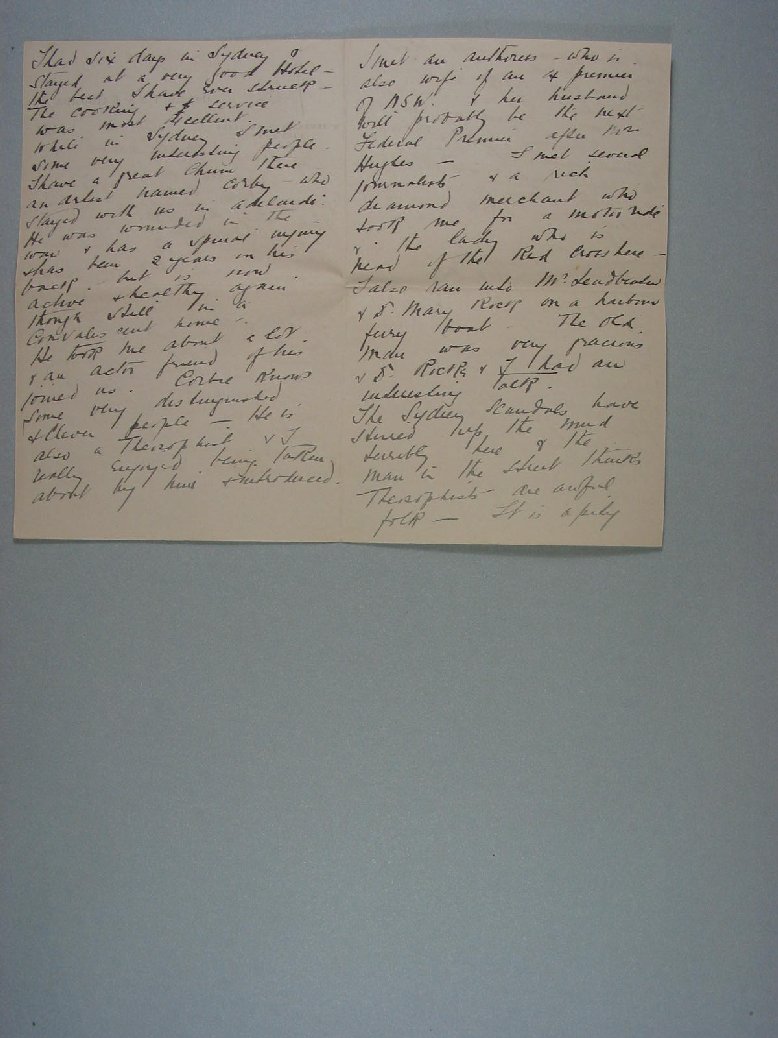 I had six days in Sydney &
stayed at a very good Hotel -
the best I have ever struck -
The cooking & service
was most excellent.
While in Sydney I met
some very interesting people.
I have a great chum there
an artist named Corby - who
stayed with us in Adelaide.
He was wounded in the
war & has a spinal injury
& has been 2 years on his
back - but is now
active & healthy again
though still in a
convalescent home.
He took me about a lot
& an actor friend of his
joined us. Corbie knows
some very distinguished
& clever people - He is
also a Theosophist & I
really enjoyed being taken
about by him & introduced.
I met an authoress - who is
also wife of an ex premier
of NSW. & her husband
will probably be the next
Federal Premier after Mr
Hughes - I met several
journalists & a rich
diamond merchant who
took me for a motor ride
& the lady who is
head of the Red Cross here -
I also ran into Mr Leadbeater
& Dr Mary Rocke on a harbour
ferry boat. The old
man was very gracious
& Dr Rocke & I had an
interesting talk.
The Sydney scandals have
stirred up the mud
terribly here & the
man in the street thinks
Theosophists are awful
folk - It is a pity